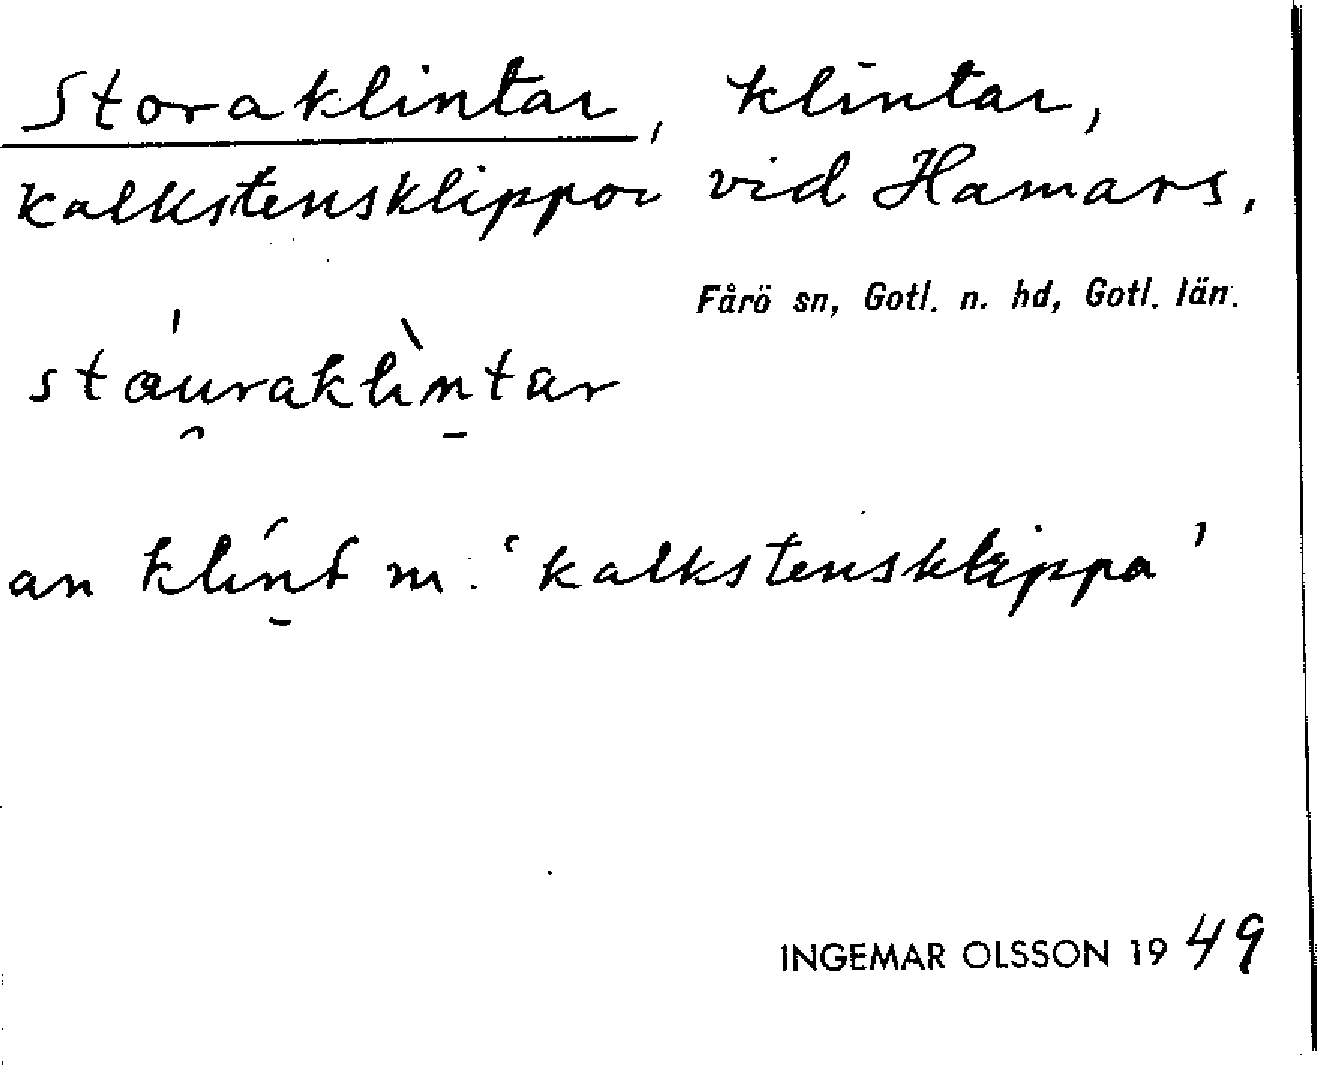 Storaklintar, klintar,
kalkstensklippor vid Hamars,
Fårö sn, Gotl. n. hd, Gotl. län.
stæuraklintar
an klint m. ‘kalkstensklippa’
INGEMAR OLSSON 1949